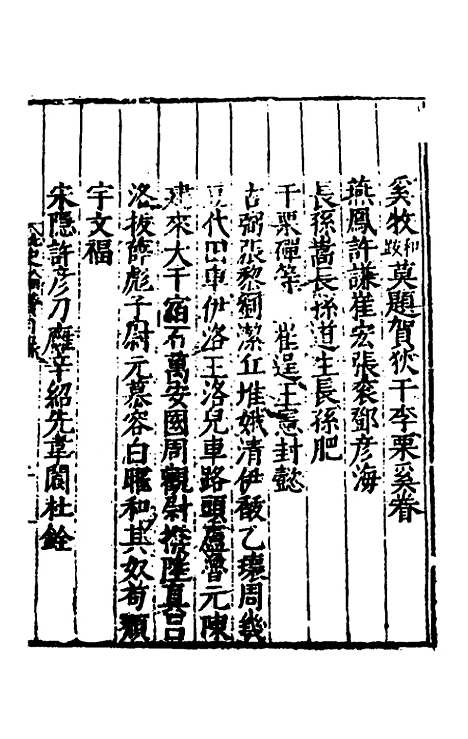 奚牧和跋莫題賀狄干李栗奚眷
燕鳳許謙崔宏張袞鄧彦海
長孫嵩長孫道生長孫肥
于栗磾等 崔逞王憲封懿
古弼張黎劉潔丘堆娥清伊馛乙瓌周幾
豆代田車伊洛王洛兒車路頭盧魯元陳
建來大千宿石萬安國周觀尉撥陸真呂
洛拔薛彪子尉元慕容白曜和其奴苟頹
宇文福
宋隱許彦刁雍辛紹先韋閬杜銓